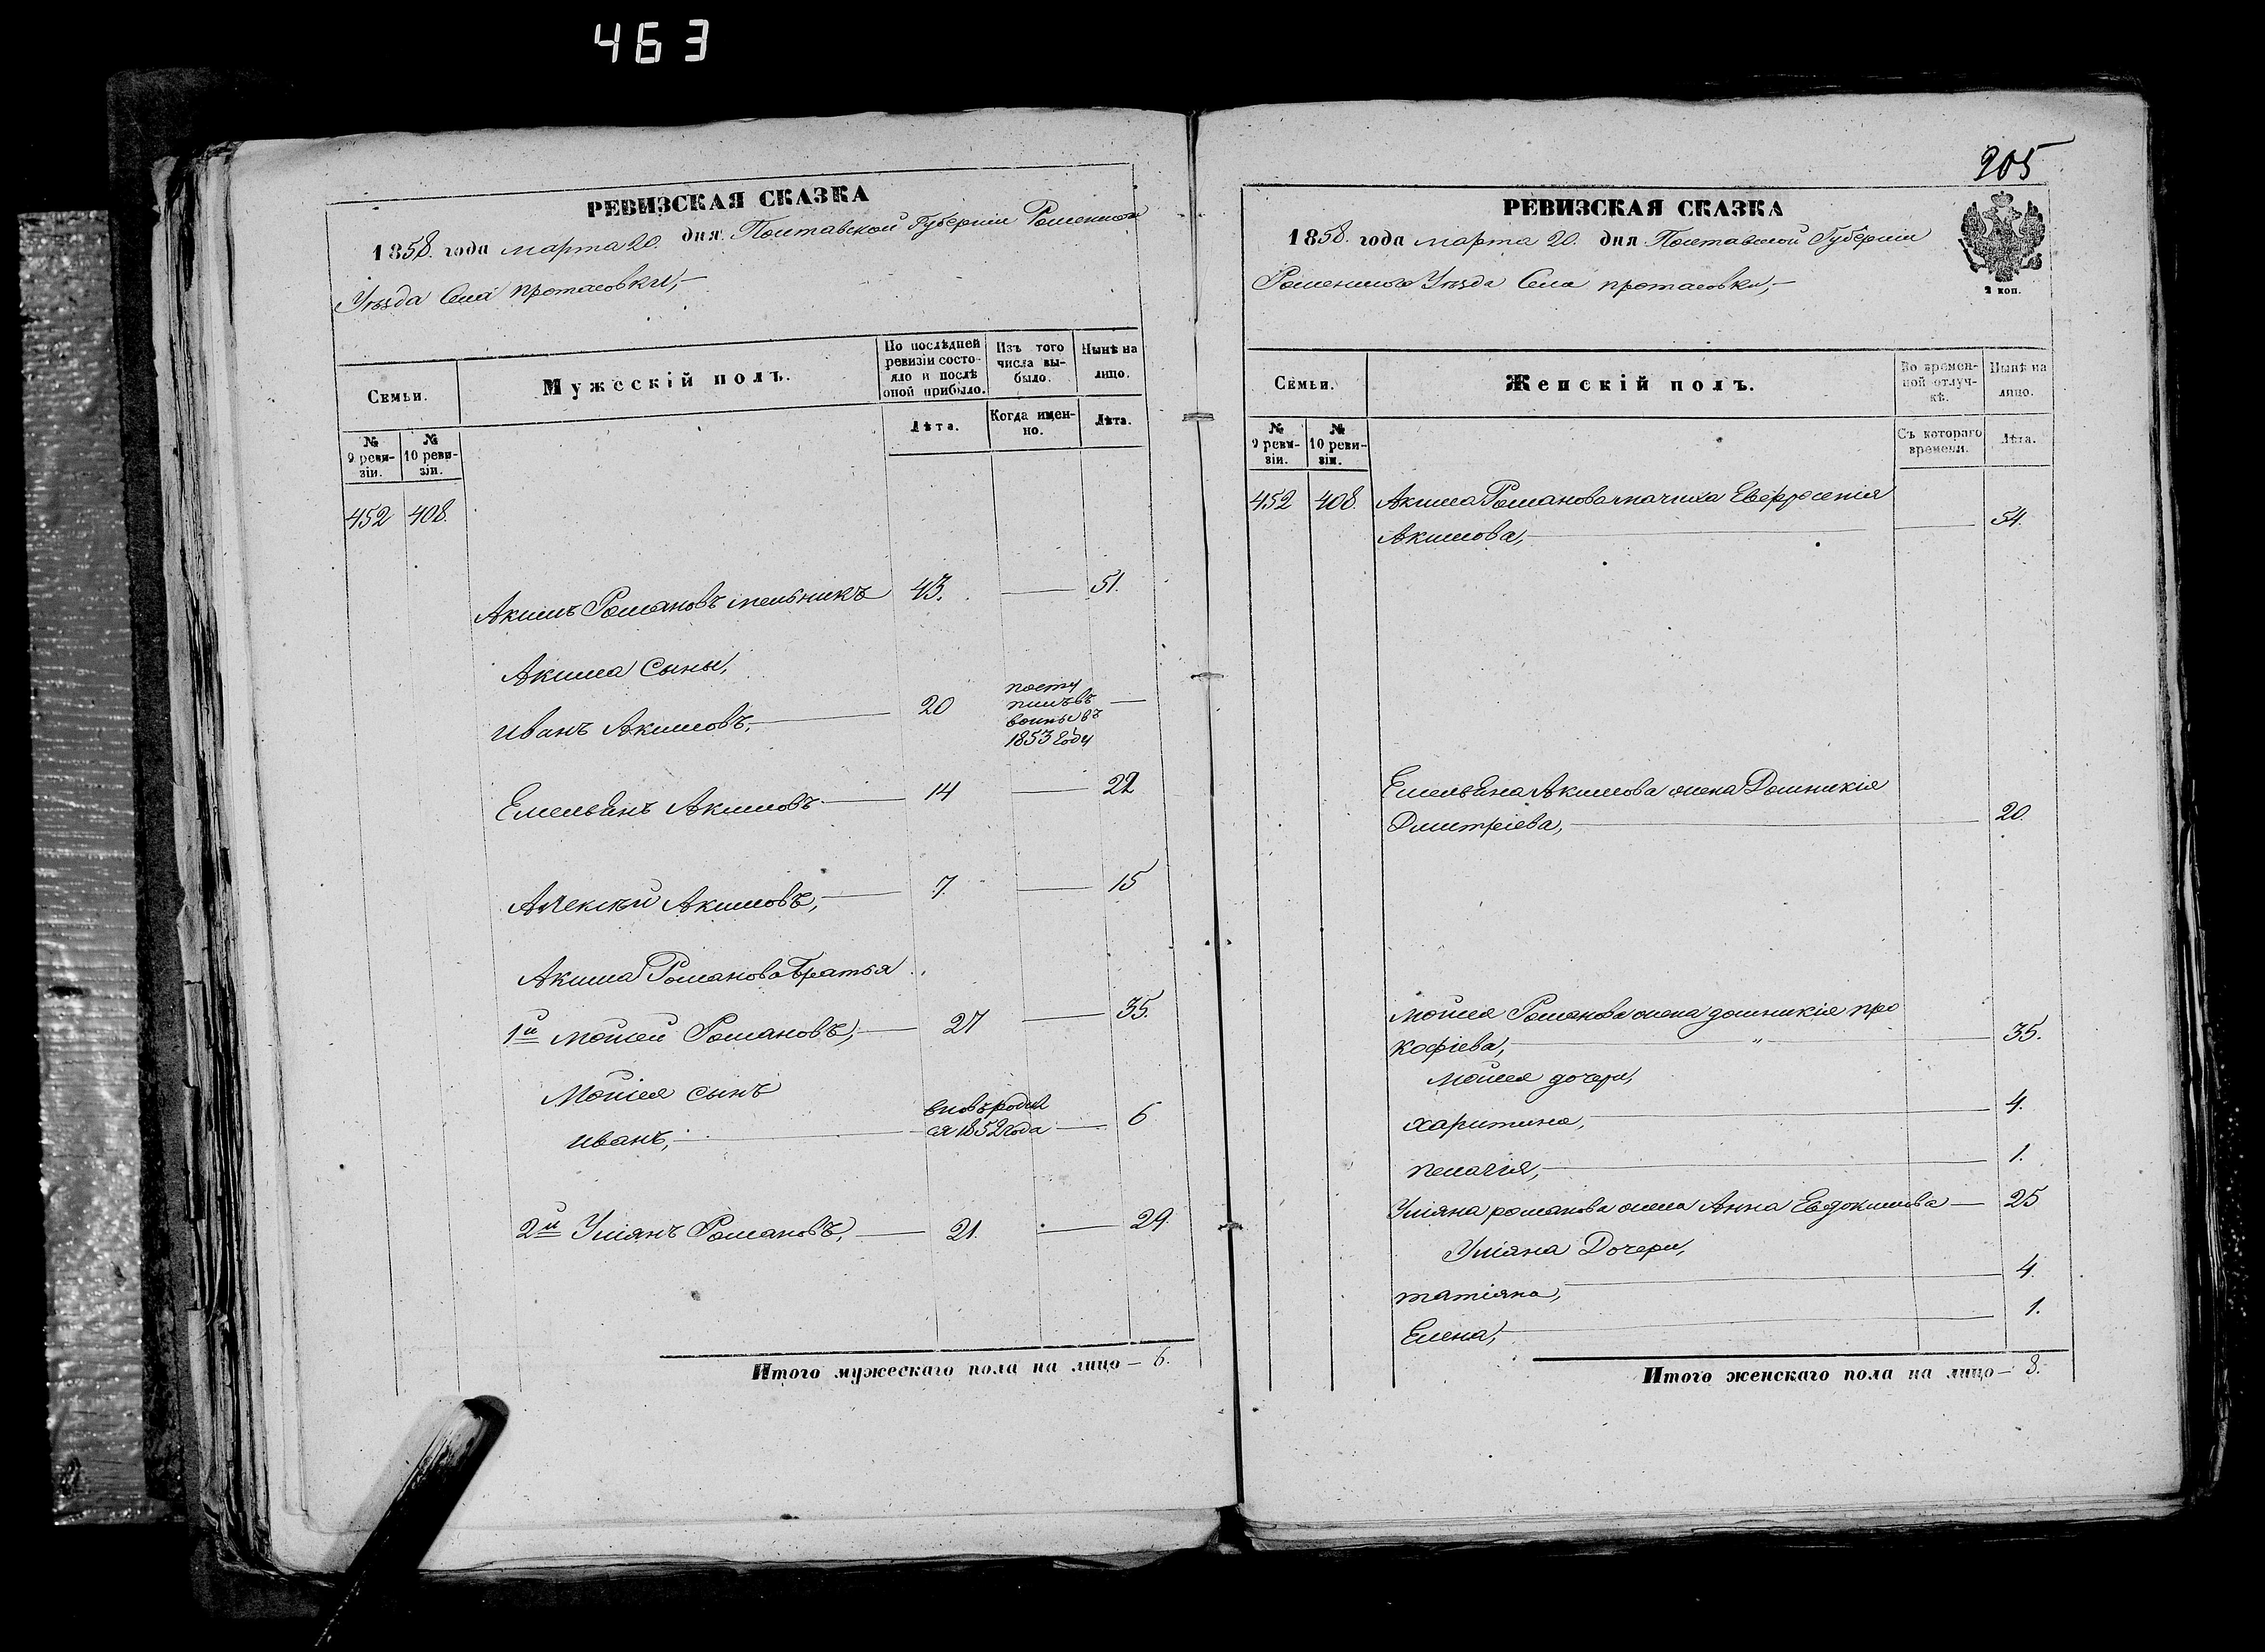 463
РЕВИЗСКАЯ СКАЗКА
1858. года марта 20. дня Полтавской Губернiи Роменского
Уѣзда Села протасовки,
Семьи.
Мужескiй полъ.
По послѣдней ревизiи состояло и послѣ оной прибыло.
Изъ того числа выбыло.
Нынѣ на лицо.
№ 9 ревизiи.
№ 10 ревизiи.
Лѣта.
Когда именно.
Лѣта.
452 408.
Акимъ Романовъ мельникъ 43. — 51.
Акима Сыны,
иванъ Акимовъ, — 20 посту
пилъ въ
воины въ
1853 году —
Емельянъ Акимовъ — 14 — 22
Алексѣй Акимовъ, — 7. — 15
Акима Романова братья
1й мойсей Романовъ, — 27 — 35.
Мойсея сынъ
иванъ, — вновь родил
ся 1852 года — 6
2й Улiянъ Романовъ, — 21. — 29.
Итого мужескаго пола на лицо — 6.
205
РЕВИЗСКАЯ СКАЗКА
1858. года марта 20. дня Полтавской Губернiи
Роменского Уѣзда Села протасовки, —
2 коп.
Семьи.
Женскiй полъ.
Во временной отлучкѣ.
Нынѣ на лицо.
№ 9 ревизiи.
№ 10 ревизiи.
Съ котораго времени.
Лѣта.
452 408. Акима Романова Евфросенiя
Акимова, — 54.
Емельяна Акимова жена Домникiя
Дмитрiева, — 20.
мойсея Романова жена домникiя про
кофiева, — 35.
мойсея дочери,
харитина, — 4.
пелагия, — 1.
Улiяна романова жена Анна Евдокимова — 25
Улiяна Дочери,
татiяна, — 4.
Елена, — 1.
Итого женскаго пола на лицо — 8.